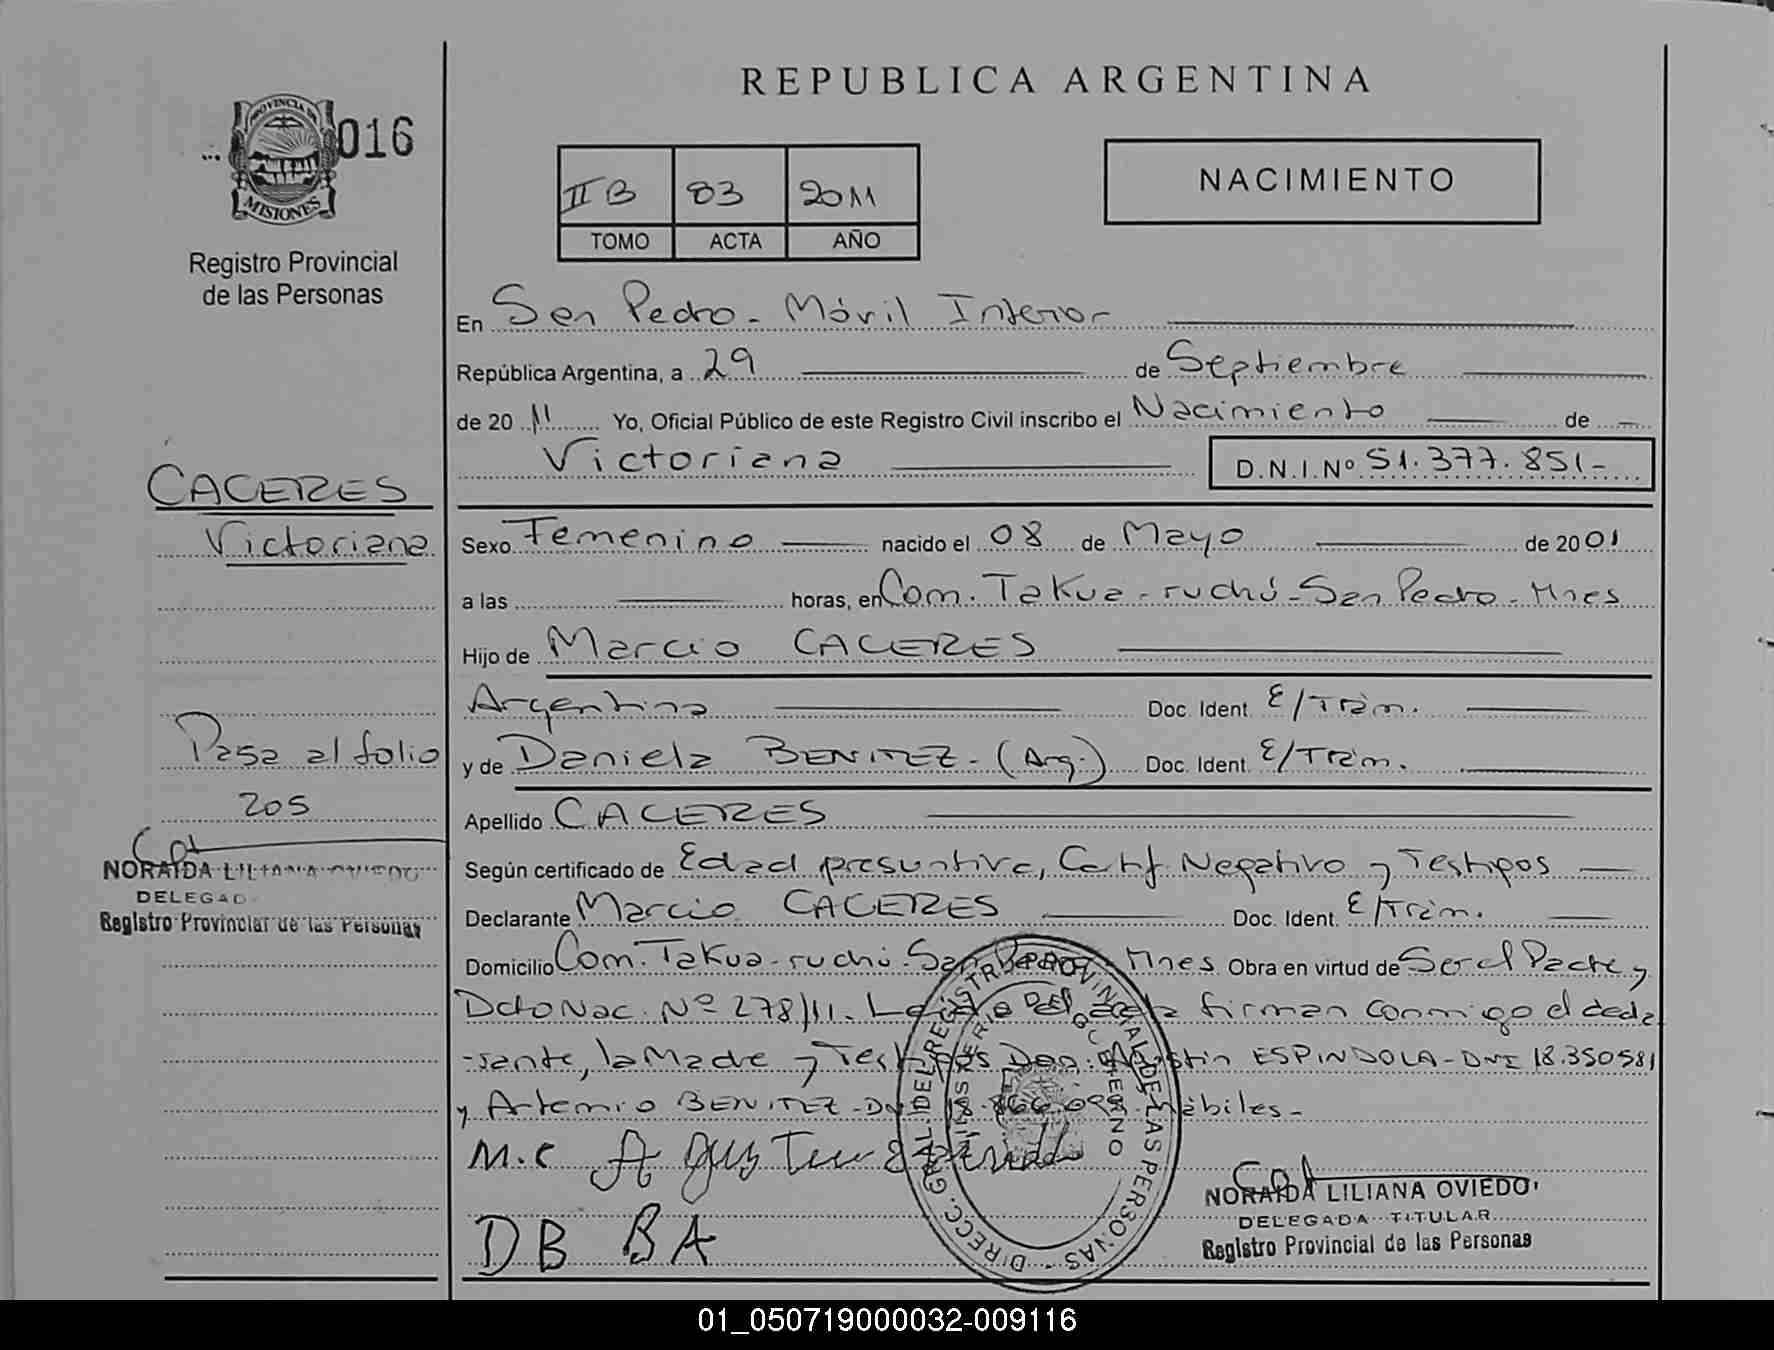 REPUBLICA ARGENTINA
PROVINCIA DE
MISIONES
016
Registro Provincial
de las Personas
II B 83 2011
TOMO ACTA AÑO
NACIMIENTO
En San Pedro - Móvil Interior
República Argentina, a 29 de Septiembre
de 20 11 Yo, Oficial Público de este Registro Civil inscribo el Nacimiento de
Victoriana D.N.I.Nº 51.377.851-
CACERES
Victoriana
Sexo Femenino nacido el 08 de Mayo de 2001
a las horas, en Com. Takua-ruchú-San Pedro-Mnes
Hijo de Marcio CACERES
Argentina Doc. Ident. E/Trám.
y de Daniela BENITEZ - (Arg.) Doc. Ident. E/Trám.
Apellido CACERES
Pasa al folio
205
NORAIDA LILIANA OVIEDO
DELEGAD
Registro Provincial de las Personas
Según certificado de Edad presuntiva, Certf. Negativo y Testigos
Declarante Marcio CACERES Doc. Ident. E/Trám.
Domicilio Com. Takua-ruchú-San Pedro Mnes Obra en virtud de Ser el Padre y
Dcto Nac. Nº 278/11. Leída el acta firman conmigo el decla
-rante, la Madre y Testigos Don: Agustin ESPINDOLA-DNI 18.350581
y Artemio BENITEZ-DNI 18.866.09 hábiles-
M.C Agustin Espindola
DB BA
DIRECC. GRAL. DEL REGISTRO PROVINCIAL DE LAS PERSONAS
MINISTERIO DE GOBIERNO
NORAIDA LILIANA OVIEDO
DELEGADA TITULAR
Registro Provincial de las Personas
01_050719000032-009116